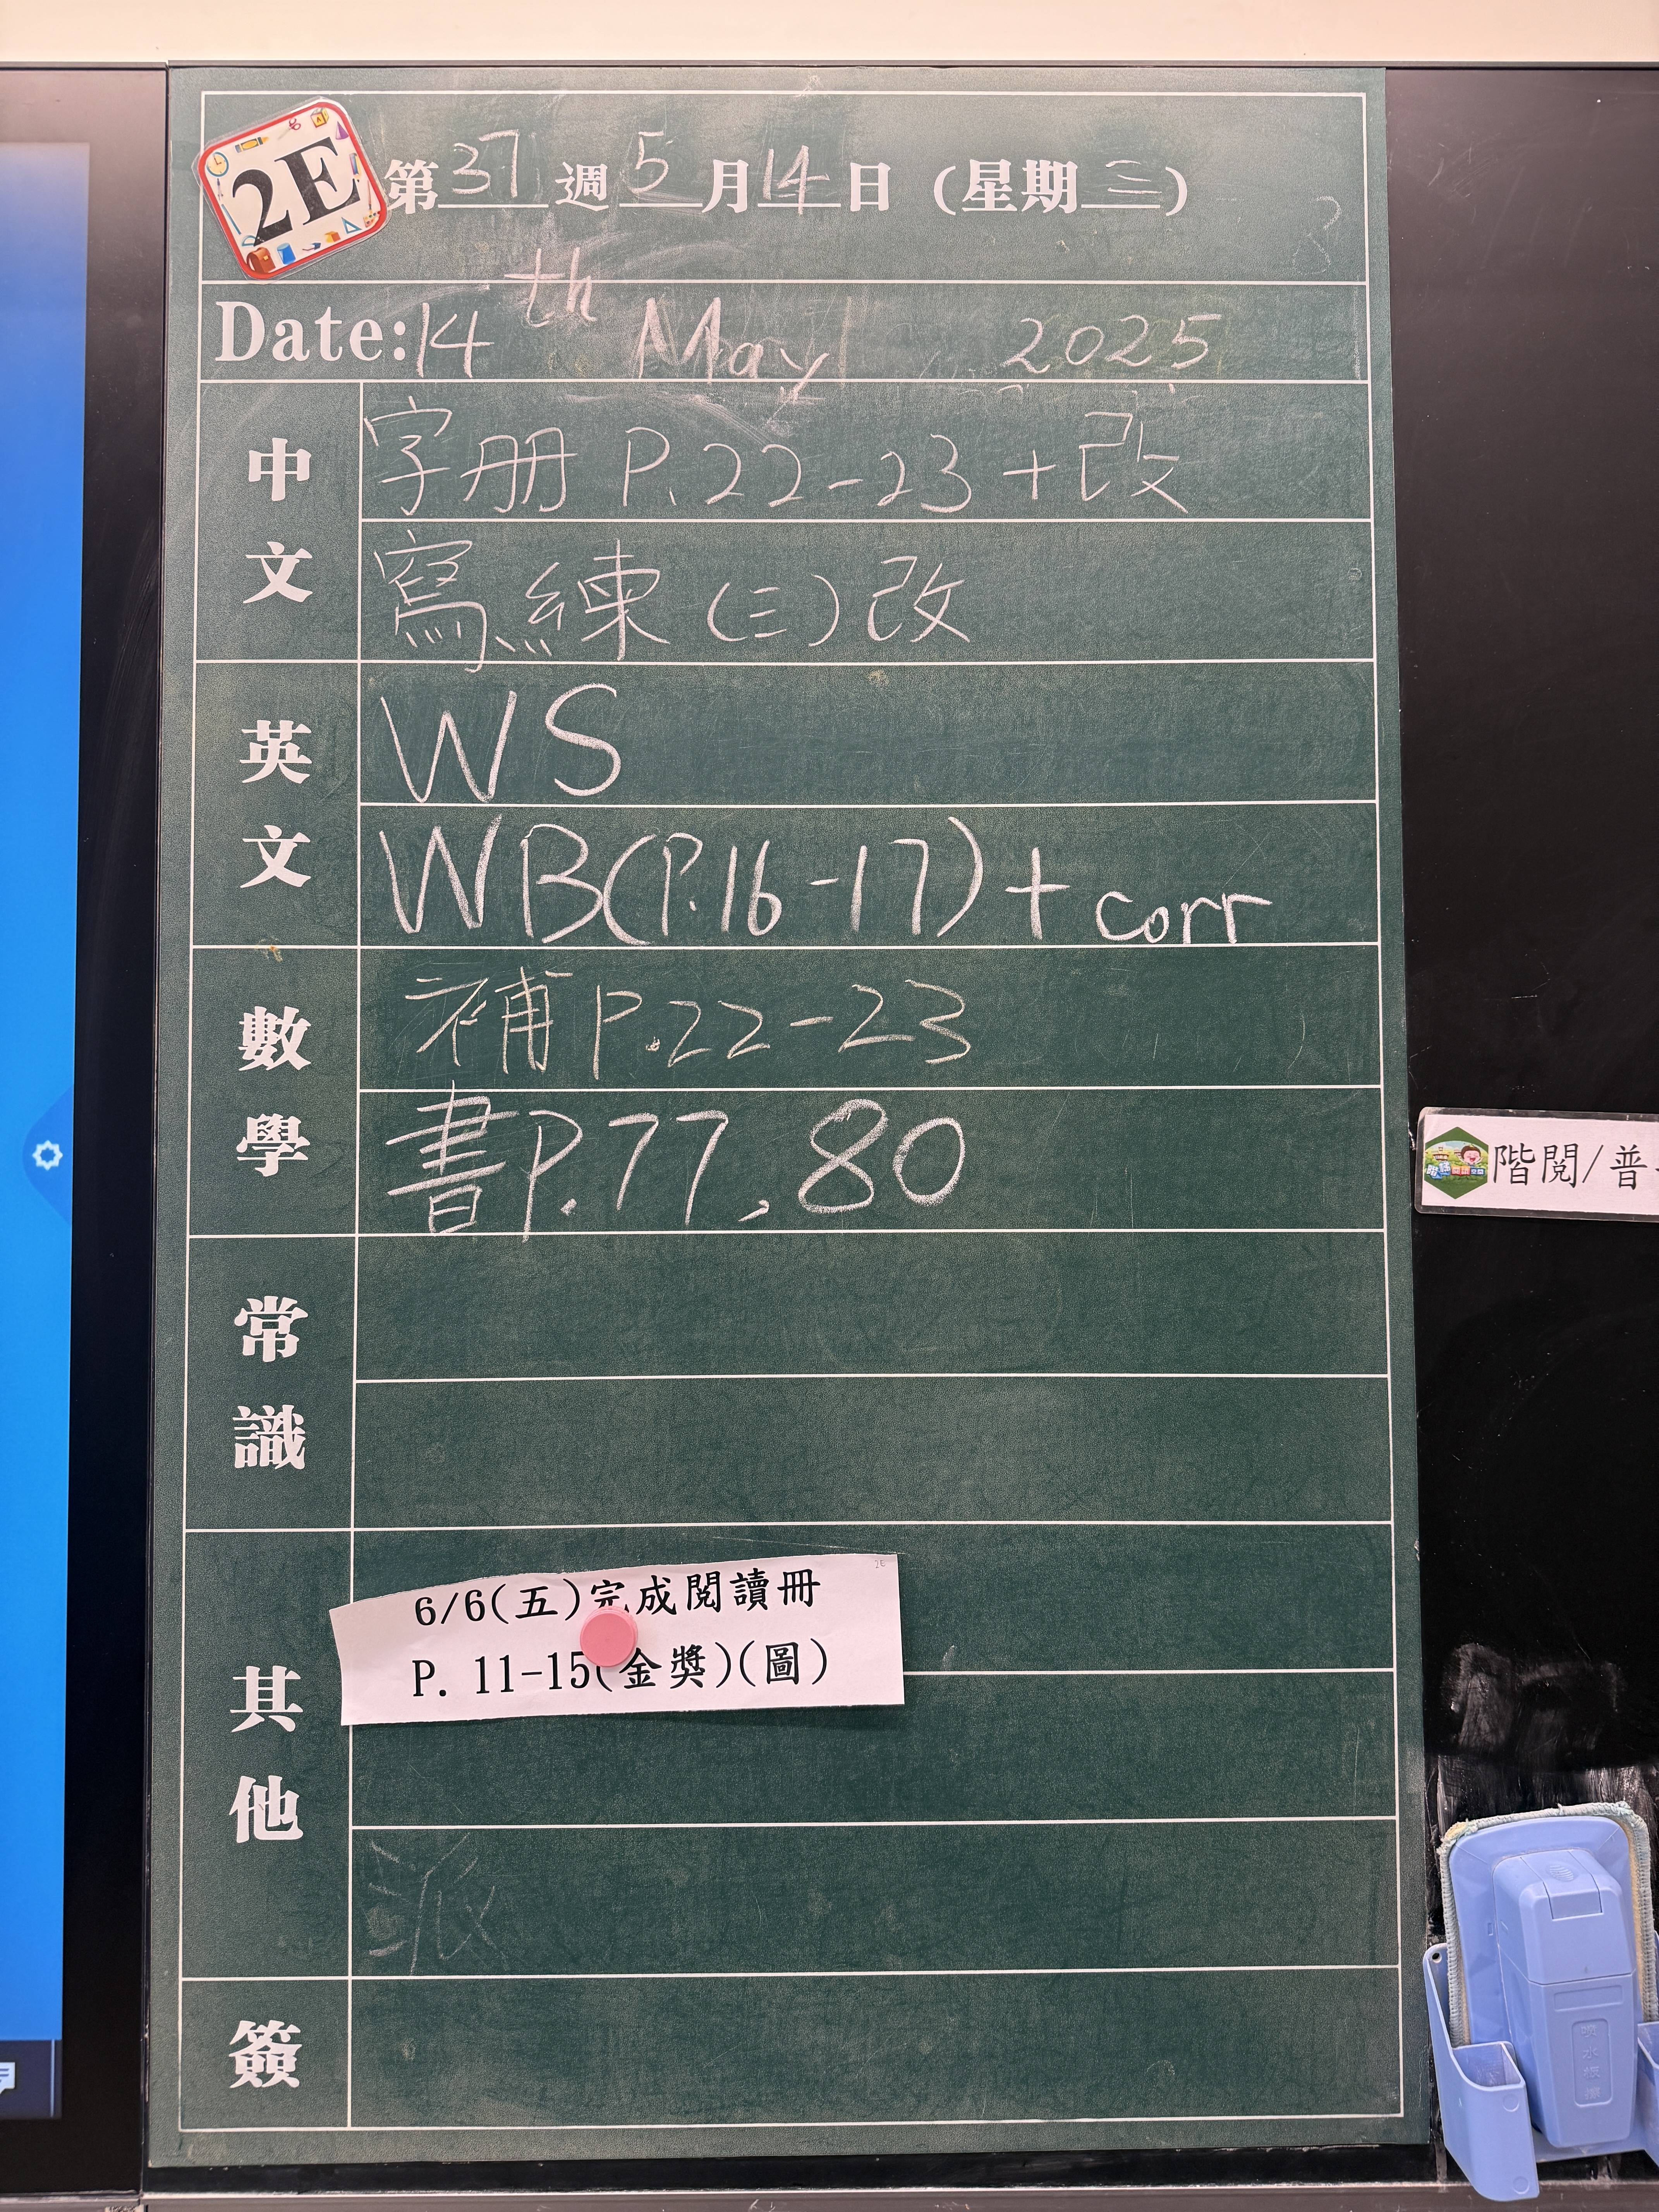 2E
第37週5月14日 (星期三)
Date: 14th May 2025
中文
字册 P.22-23 + 改
寫練 (三) 改
英文
WS
WB(P.16-17) + corr
數學
補 P.22-23
書 P.77, 80
常識
其他
6/6(五)完成閱讀冊
P. 11-15(金獎)(圖)
派
簽
階閱/普